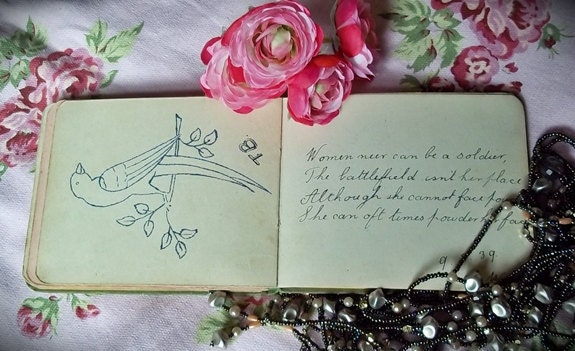 Women neer can be a soldier,
The battlefield isnt her place
Although she cannot face
She can oft times powder